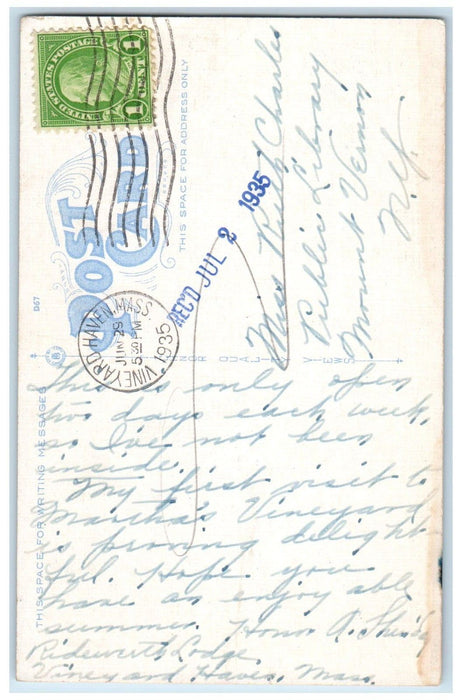 UNITED STATES POSTAGE
1 CENT 1
THIS SPACE FOR ADDRESS ONLY
POST CARD
D67
VINEYARD HAVEN, MASS.
JUN 29
530 PM
1935
REC'D JUL 2 1935
Miss Ruth Charles
Public Library
Mount Vernon
N.Y.
THIS SPACE FOR WRITING MESSAGES
This is only open
two days each week,
so I've not been
inside.
My first visit to
Martha's Vineyard
is proving delight-
ful. Hope you
have an enjoy able
summer. Honor A.
Lodge
Vineyard Haven, Mass.